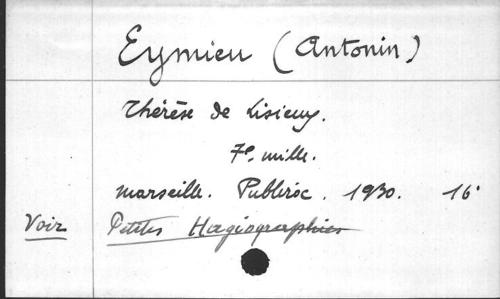 Eymieu (Antonin)
Thérèse de Lisieux.
7e. mille.
Marseille. Publiroc. 1930. 16°
Voir Petites Hagiographies